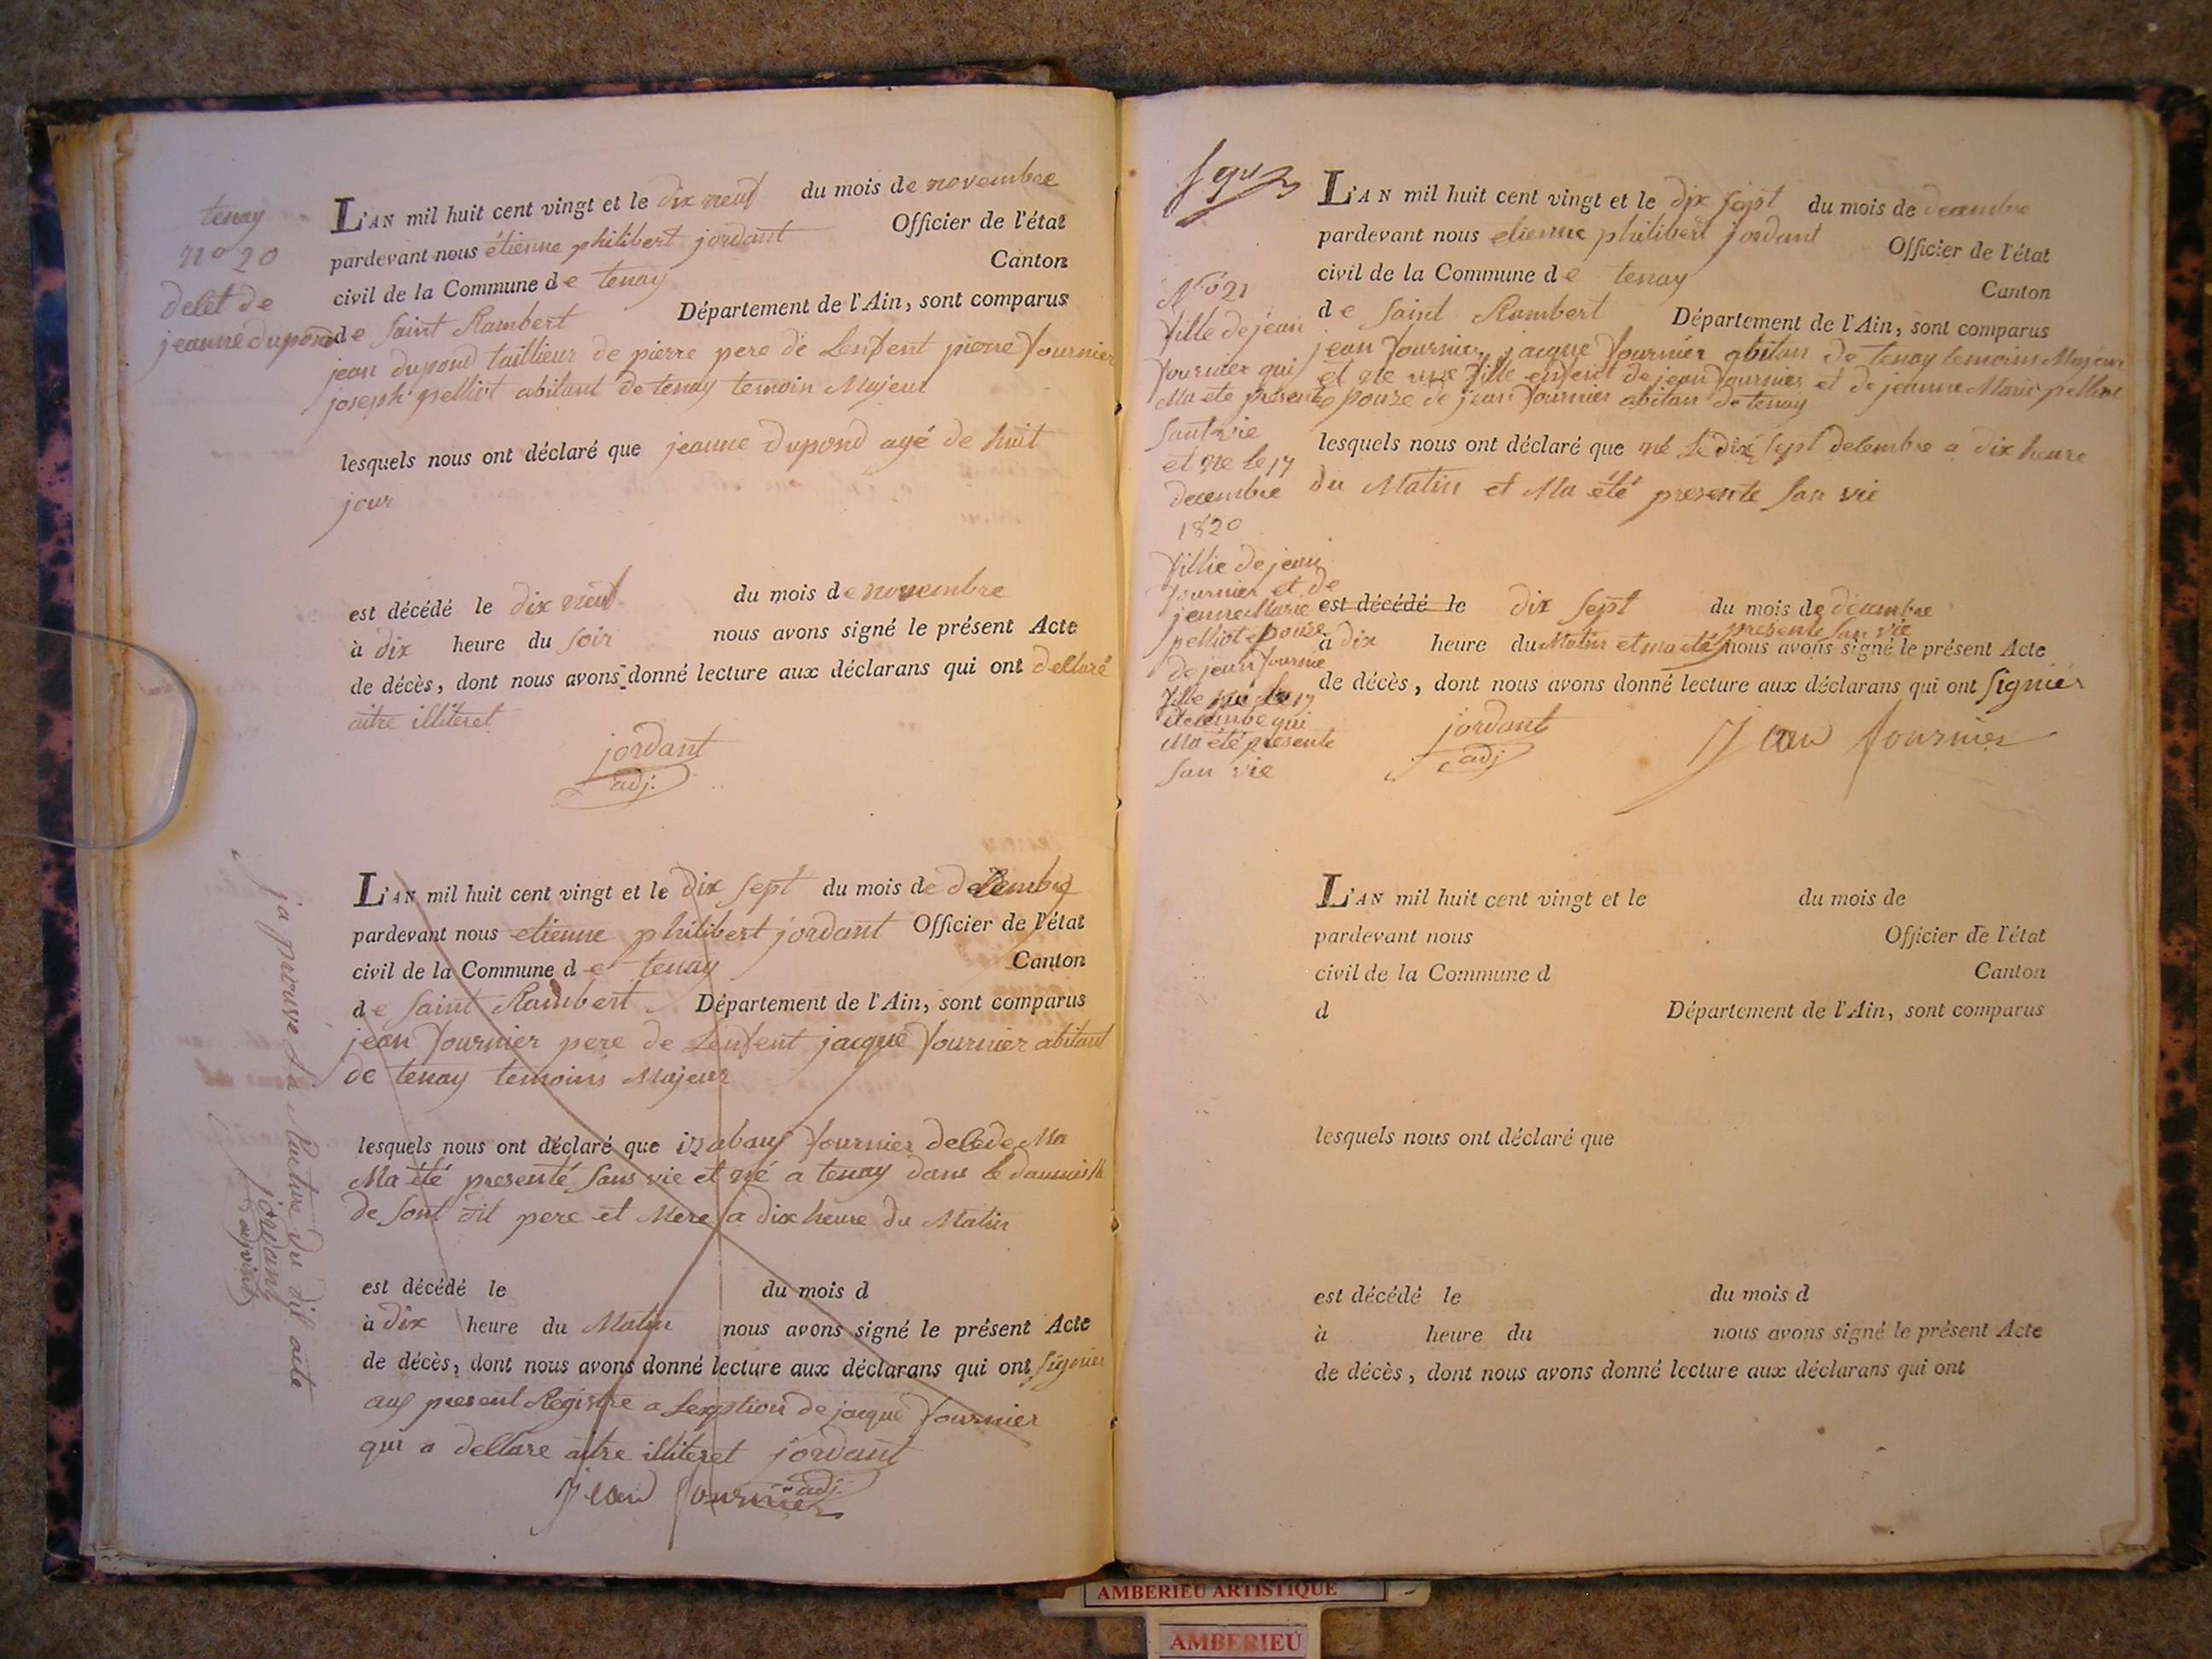 tenay
nº 20
delet de
jeanne dupond
L'AN mil huit cent vingt et le dix neuf du mois de novembre
pardevant nous étienne philibert jordant Officier de l'état
civil de la Commune de tenay Canton
de Saint Rambert Département de l'Ain, sont comparus
jean dupond taillieur de pierre pere de Lenfent pierre fournier
joseph pelliot abitant de tenay temoin Majeur
lesquels nous ont déclaré que jeanne dupond agé de huit
jour
est décédé le dix neuf du mois de novembre
à dix heure du soir nous avons signé le présent Acte
de décès, dont nous avons donné lecture aux déclarans qui ont dellaré
aitre illiteret
jordant
adj.
L'AN mil huit cent vingt et le dix sept du mois de
pardevant nous etienne philibert jordant Officier de l'état
civil de la Commune de tenay Canton
de Saint Rambert Département de l'Ain, sont comparus
jean fournier pere de Lenfent jacque fournier abitant
de tenay temoins Majeur
lesquels nous ont déclaré que fournier
Ma été presenté sans vie et né a tenay dans le
de sont dit pere et Mere a dix heure du Matin
est décédé le du mois d
à dix heure du Matin nous avons signé le présent Acte
de décès, dont nous avons donné lecture aux déclarans qui ont signier
present Registre a de jacque fournier
qui a dellare aitre illiteret jordant
adj.
jean fournier
ja prouve La Racture du dit acte
jordant
adjoint
Nº 21
fille de jean
fournier qui
Ma ete presente
sant vie
et ne le 17
decembre
1820
fillie de jean
fournier et de
jenne Marie
pelliot epouze
de jean fournie
fille né le 17
decembe qui
Ma été presente
san vie
L'AN mil huit cent vingt et le dix sept du mois de decembre
pardevant nous etienne philibert jordant Officier de l'état
civil de la Commune de tenay Canton
de Saint Rambert Département de l'Ain, sont comparus
jean fournier jacque fournier abitan de tenay temoins Majeur
et ne une fille enfent de jean fournier et de jeanne Marie pelliot
epouze de jean fournier abitan de tenay
lesquels nous ont déclaré que né Le dix sept decembre a dix heure
du Matin et Ma été presente san vie
est décédé le dix sept du mois de décembre
presente san vie
à dix heure du Matin et ma été nous avons signé le présent Acte
de décès, dont nous avons donné lecture aux déclarans qui ont signier
jordant
adj
jean fournier
L'AN mil huit cent vingt et le du mois de
pardevant nous Officier de l'état
civil de la Commune d Canton
d Département de l'Ain, sont comparus
lesquels nous ont déclaré que
est décédé le du mois d
à heure du nous avons signé le présent Acte
de décès, dont nous avons donné lecture aux déclarans qui ont
AMBERIEU ARTISTIQUE
AMBERIEU